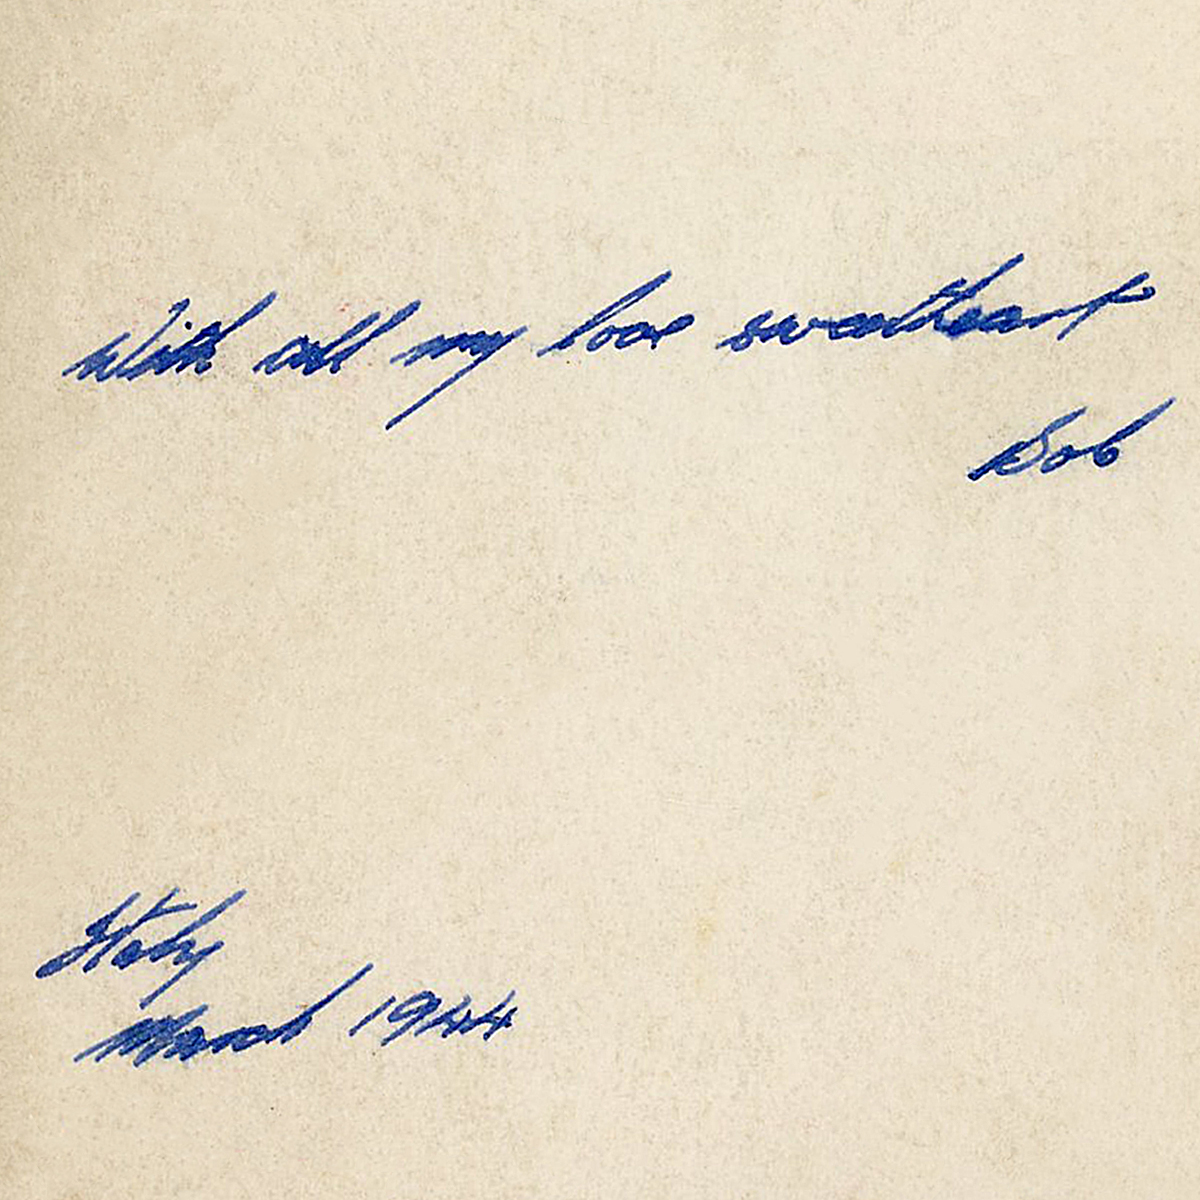 With all my love sweetheart
Bob
Italy
March 1944